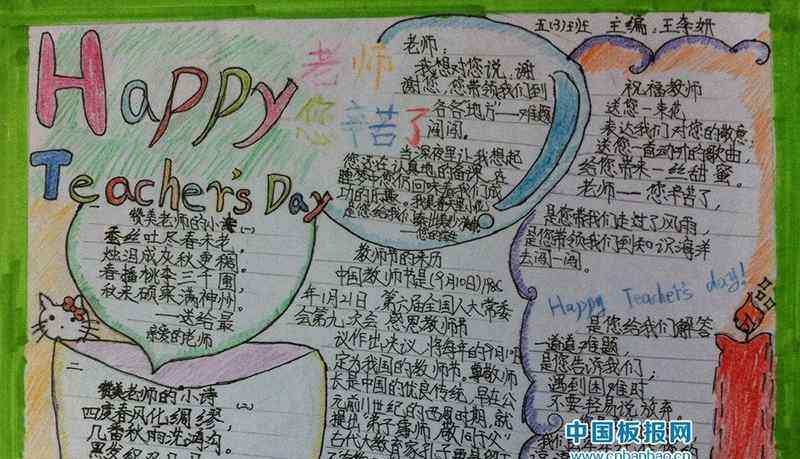 Happy
Teacher's Day
老师
您辛苦了
老师:
我想对您说:谢
谢您,您带领我们到
各各地方"——难题
闯闯。
当深夜里让我想起
您还在认真地备课,在
睡梦中你仍回味着我们成
功的乐趣。
是您给我们
五(3)班 主编:王
祝福教师
送您一束花
表达我们对您的敬意,
送您一首动听的歌曲,
给您带来一丝甜蜜。
老师——您辛苦了,
是您带我们走过了风雨,
是您带领我们到知识海洋
去闯一闯。
Happy Teacher's day!
是您给我们解答
一道道难题,
是您告诉我们,
遇到困难时
不要轻易说放弃。
赞美老师的小诗(一)
蚕丝吐尽春未老,
烛泪成灰秋更稠。
春播桃李三千圃,
秋来硕果满神州。
——送给最
亲爱的老师
二
赞美老师的小诗(二)
四度春风化绸缪,
几番秋雨洗鸿沟。
教师节的来历
中国教师节是(9月10日)198
年1月21日,第六届全国人大常委
会第九次会 您思教师节
议作出决议,将每年的9月10
定为我国的教师节。尊敬师
长是中国的优良传统,早在公
元前11世纪的西周时期,就
提出"弟子事师,敬同于父"
古代大教育家孔子更是留下
中国板报网
www.cnbanbao.cn